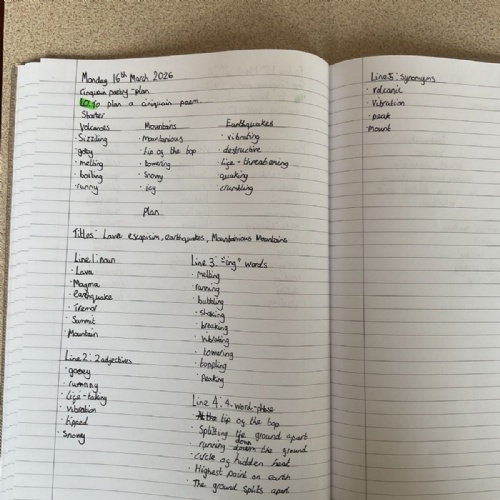 Monday 16th March 2026
Cinquain poetry-plan
LO To plan a cinquain poem.
Starter
Volcanoes
· Sizzling
· gooey
· melting
· boiling
· runny
Mountains
· Mountanious
· tip of the top
· towering
· snowy
· icy
Earthquakes
· vibrating
· destructive
· life-threatening
· quaking
· crumbling
Plan
Titles: Lava escapisim, earthquakes, Mountanious Mountains
Line 1: noun
· Lava
· Magma
· earthquake
· Tremor
· Summit
· Mountain
Line 2: 2 adjectives
· gooey
· runnny
· life-taking
· vibration
· tipped
· Snowy
Line 3: "ing" words
· melting
· running
· bubbling
· shaking
· breaking
· vibrating
· towering
· toppling
· Peaking
Line 4: 4-word-phrase
· the tip of the top
· Splitting the ground apart
· running down the ground
· circle of hidden heat
· Highest point on earth
· The ground splits apart
Line 5: Synonyms
· volcanic
· vibration
· peak
· mount